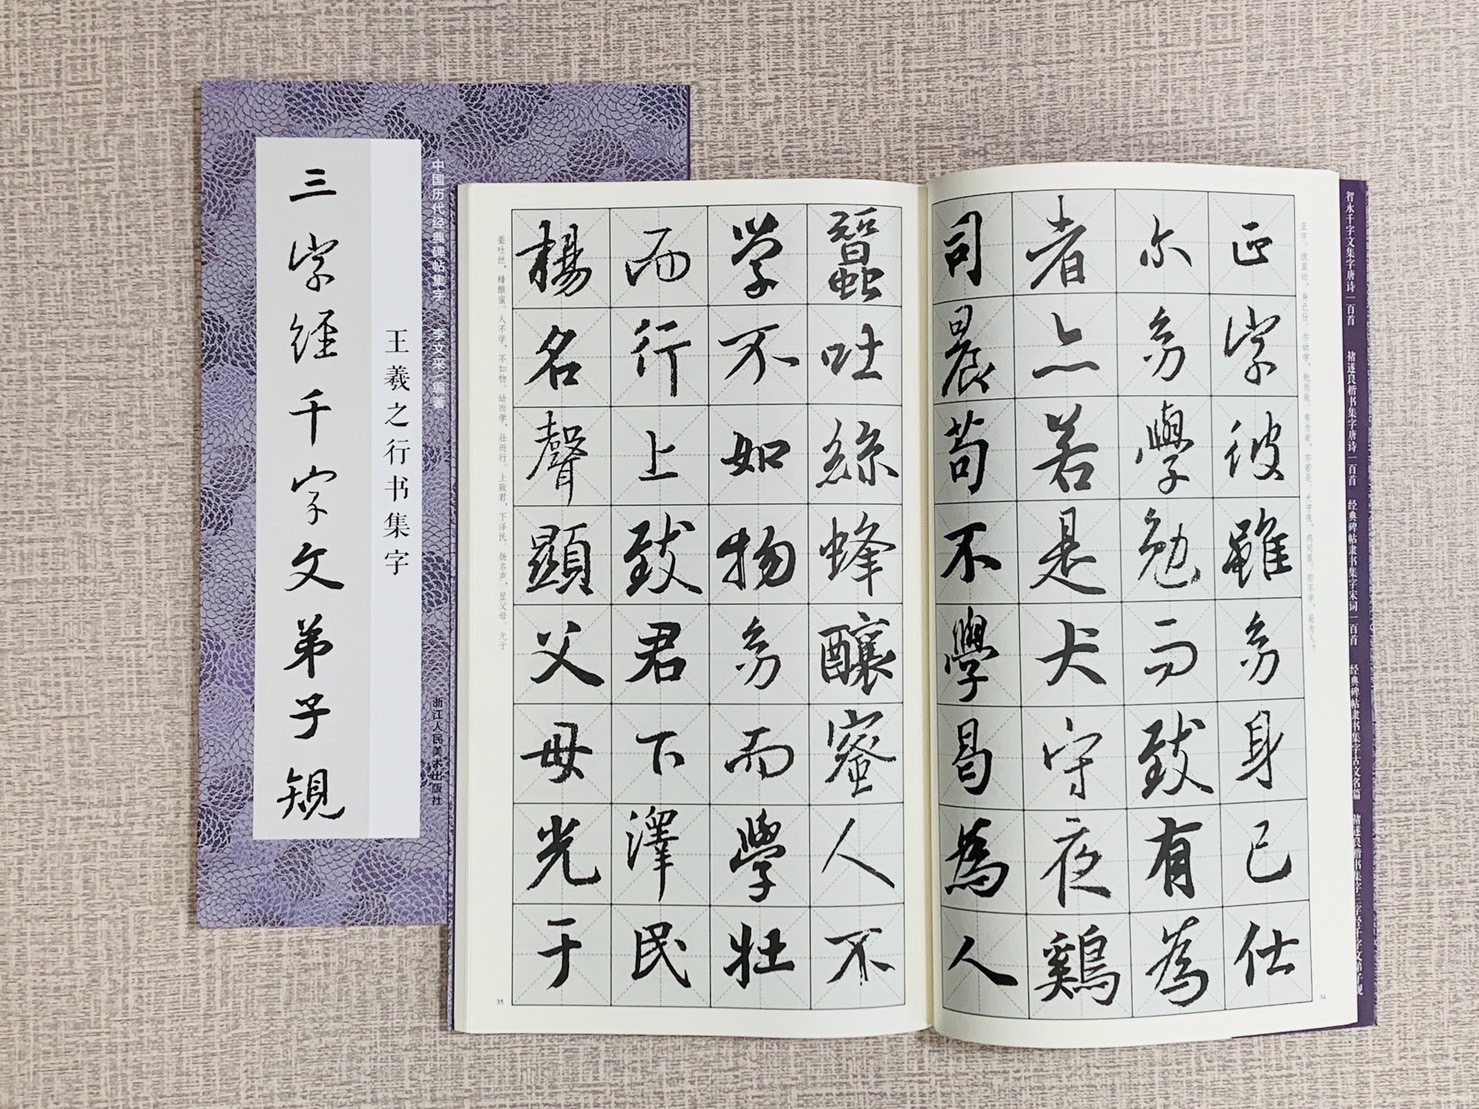 三字经千字文弟子规
王羲之行书集字
中国历代经典碑帖集字 李文采 编著
浙江人民美术出版社
正字彼雖幼身已仕
尔幼學勉而致有為
者亦若是犬守夜鷄
司晨苟不學曷為人
蠶吐絲蜂釀蜜人不
學不如物幼而學壮
而行上致君下澤民
楊名聲顯父母光于
蚕吐丝，蜂酿蜜。人不学，不如物。幼而学，壮而行。上致君，下泽民。扬名声，显父母。光于
35
34
智永千字文集字唐诗一百首
褚遂良楷书集字唐诗一百首
经典碑帖隶书集字宋词一百首
经典碑帖隶书集字古文名篇
褚遂良楷书集字三字经千字文弟子规